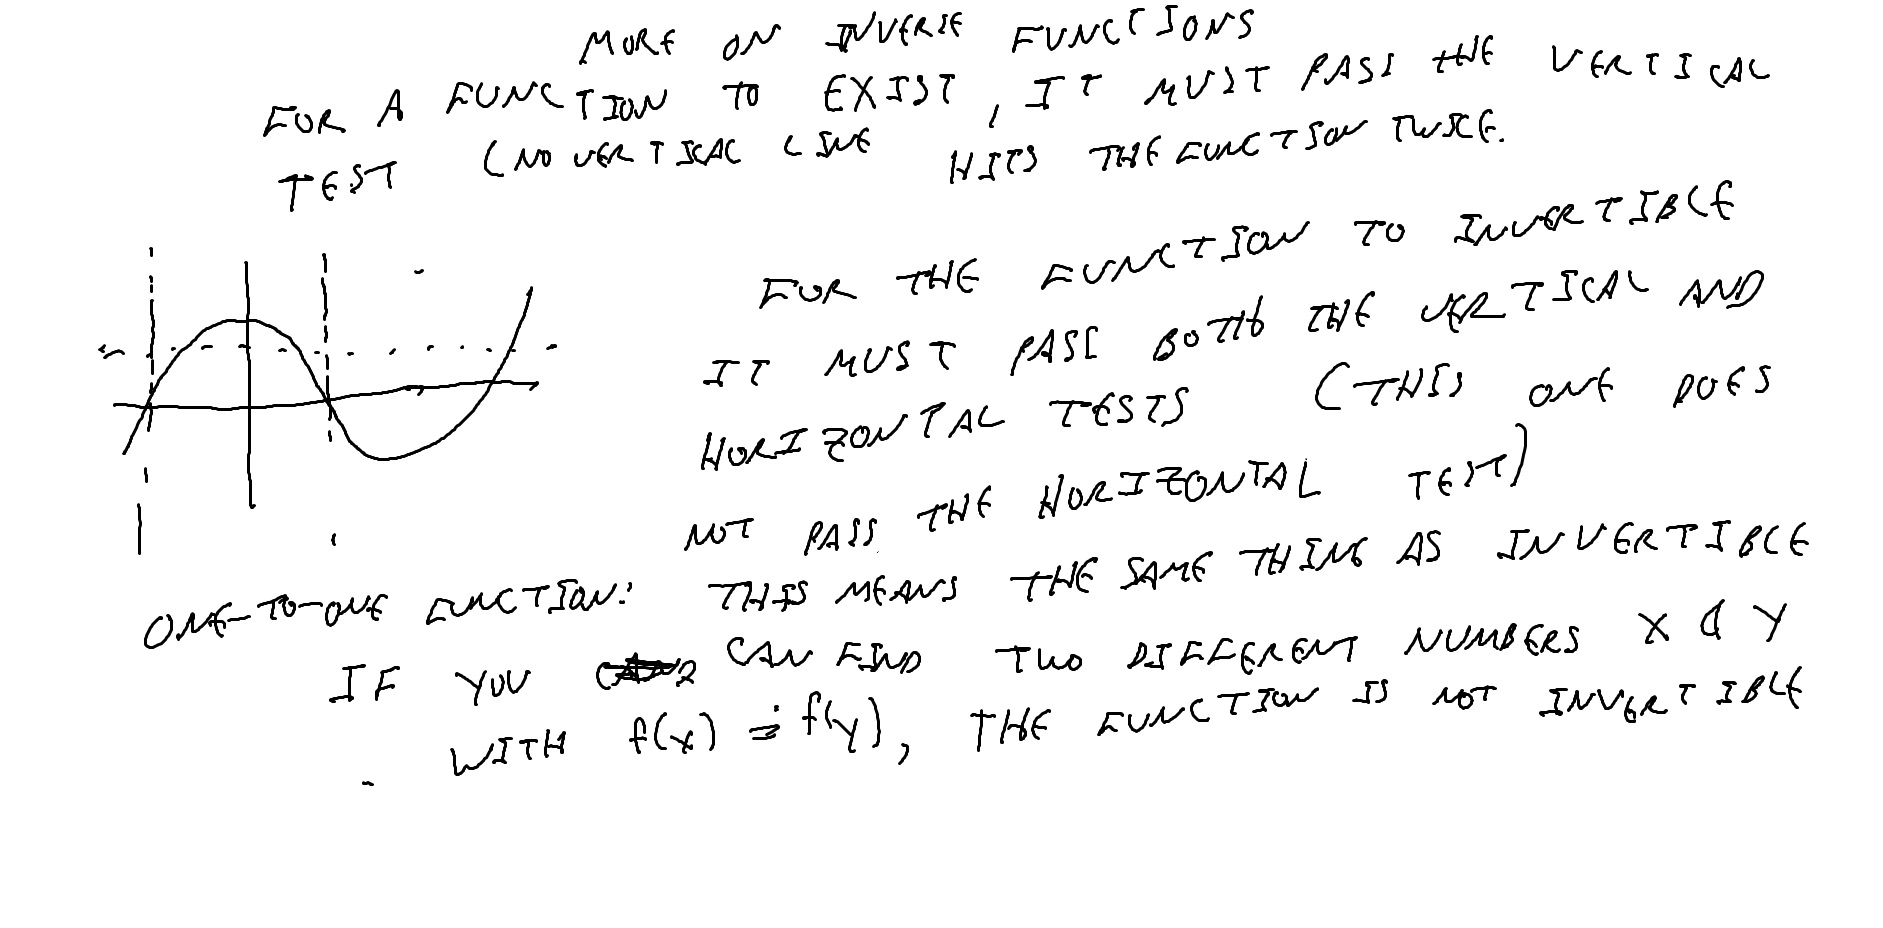 MORE ON INVERSE FUNCTIONS
FOR A FUNCTION TO EXIST, IT MUST PASS THE VERTICAL
TEST (NO VERTICAL LINE HITS THE FUNCTION TWICE.
FOR THE FUNCTION TO INVERTIBLE
IT MUST PASS BOTH THE VERTICAL AND
HORIZONTAL TESTS (THIS ONE DOES
NOT PASS THE HORIZONTAL TEST)
ONE-TO-ONE FUNCTION: THIS MEANS THE SAME THING AS INVERTIBLE
IF YOU CAN FIND TWO DIFFERENT NUMBERS X & Y
WITH f(x) = f(y), THE FUNCTION IS NOT INVERTIBLE